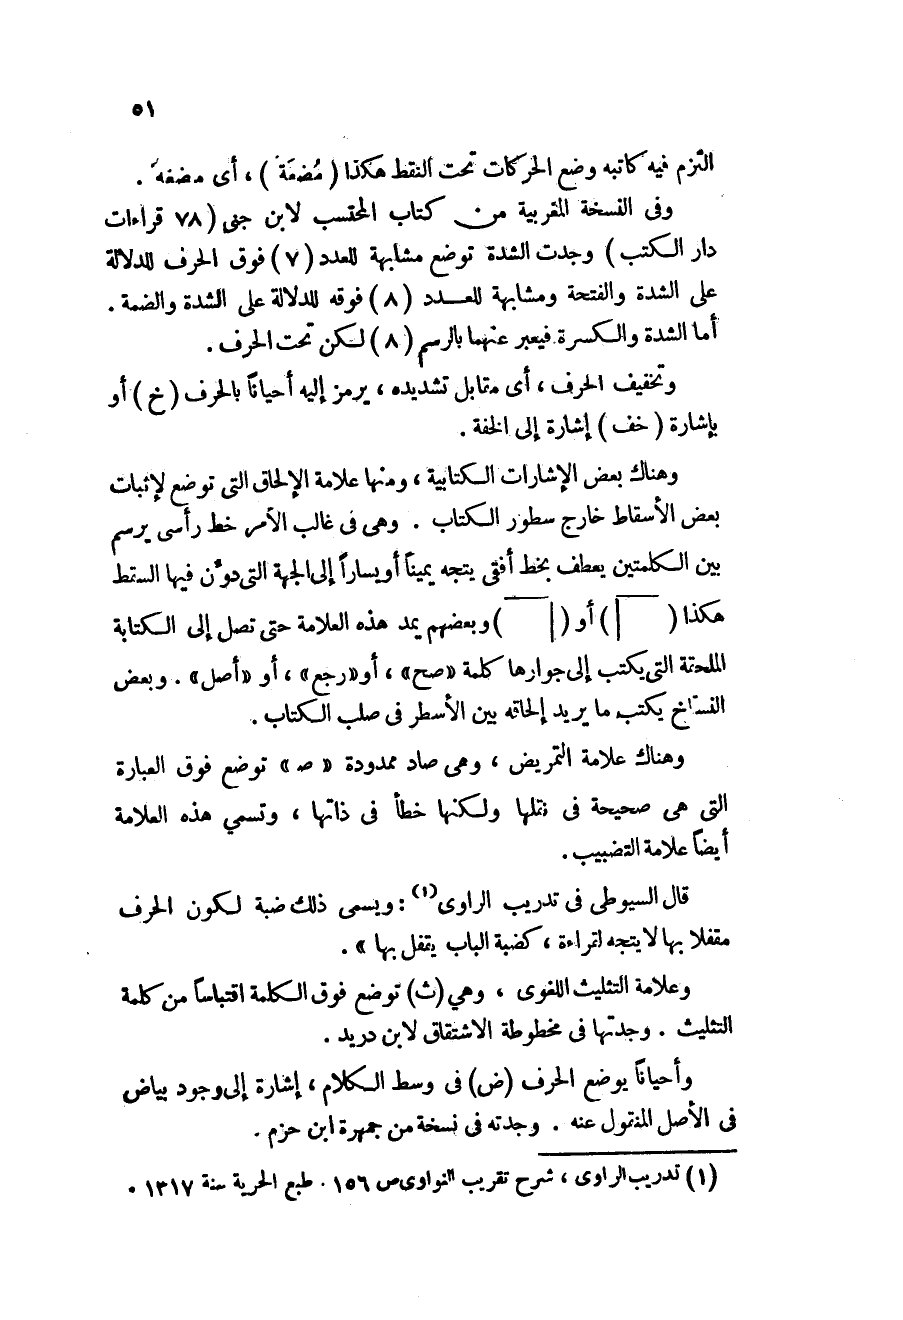 ٥١
التزم فيه كاتبه وضع الحركات تحت النقط هكذا ( مُضغَة ) ، أى مضغة .
وفى النسخة المغربية من كتاب المحتسب لابن جنى ( ٧٨ قراءات
دار الكتب ) وجدت الشدة توضع مشابهة للعدد ( ٧ ) فوق الحرف للدلالة
على الشدة والفتحة ومشابهة للعدد ( ٨ ) فوقه للدلالة على الشدة والضمة .
أما الشدة والكسرة فيعبر عنهما بالرسم ( ٨ ) لكن تحت الحرف .
وتخفيف الحرف ، أى مقابل تشديده ، يرمز إليه أحياناً بالحرف ( خ ) أو
بإشارة ( خف ) إشارة إلى الخفة .
وهناك بعض الإشارات الكتابية ، ومنها علامة الإلحاق التى توضع لإثبات
بعض الأسقاط خارج سطور الكتاب . وهى فى غالب الأمر خط رأسى يرسم
بين الكلمتين يعطف بخط أفقى يتجه يميناً أو يساراً إلى الجهة التى دوِّن فيها السقط
هكذا ( ) أو ( ) وبعضهم يمد هذه العلامة حتى تصل إلى الكتابة
الملحقة التى يكتب إلى جوارها كلمة «صح» ، أو «رجع» ، أو «أصل» . وبعض
النسّاخ يكتب ما يريد إلحاقه بين الأسطر فى صلب الكتاب .
وهناك علامة التمريض ، وهى صاد ممدودة « صـ » توضع فوق العبارة
التى هى صحيحة فى نقلها ولكنها خطأ فى ذاتها ، وتسمي هذه العلامة
أيضاً علامة التضبيب .
قال السيوطى فى تدريب الراوى(١) : ويسمى ذلك ضبة لكون الحرف
مقفلا بها لا يتجه لقراءة ، كضبة الباب يقفل بها » .
وعلامة التثليث اللغوى ، وهي (ث) توضع فوق الكلمة اقتباساً من كلمة
التثليث . وجدتها فى مخطوطة الاشتقاق لابن دريد .
وأحياناً يوضع الحرف (ض) فى وسط الكلام ، إشارة إلى وجود بياض
فى الأصل المنقول عنه . وجدته فى نسخة من جمهرة ابن حزم .
(١) تدريب الراوى ، شرح تقريب النواوى ص ١٥٦ . طبع الخيرية سنة ١٣١٧ .